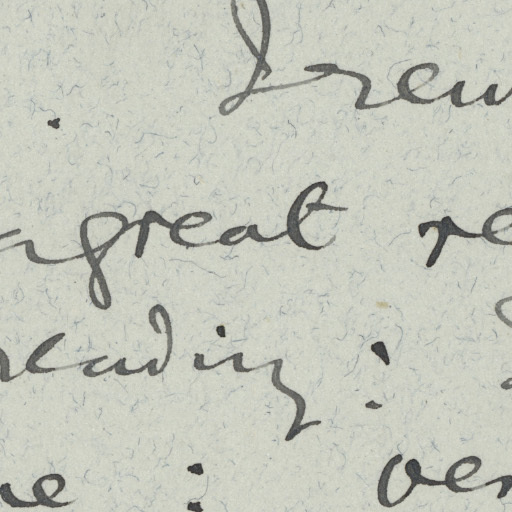 . I rem
a great re
reading :
ne : ver